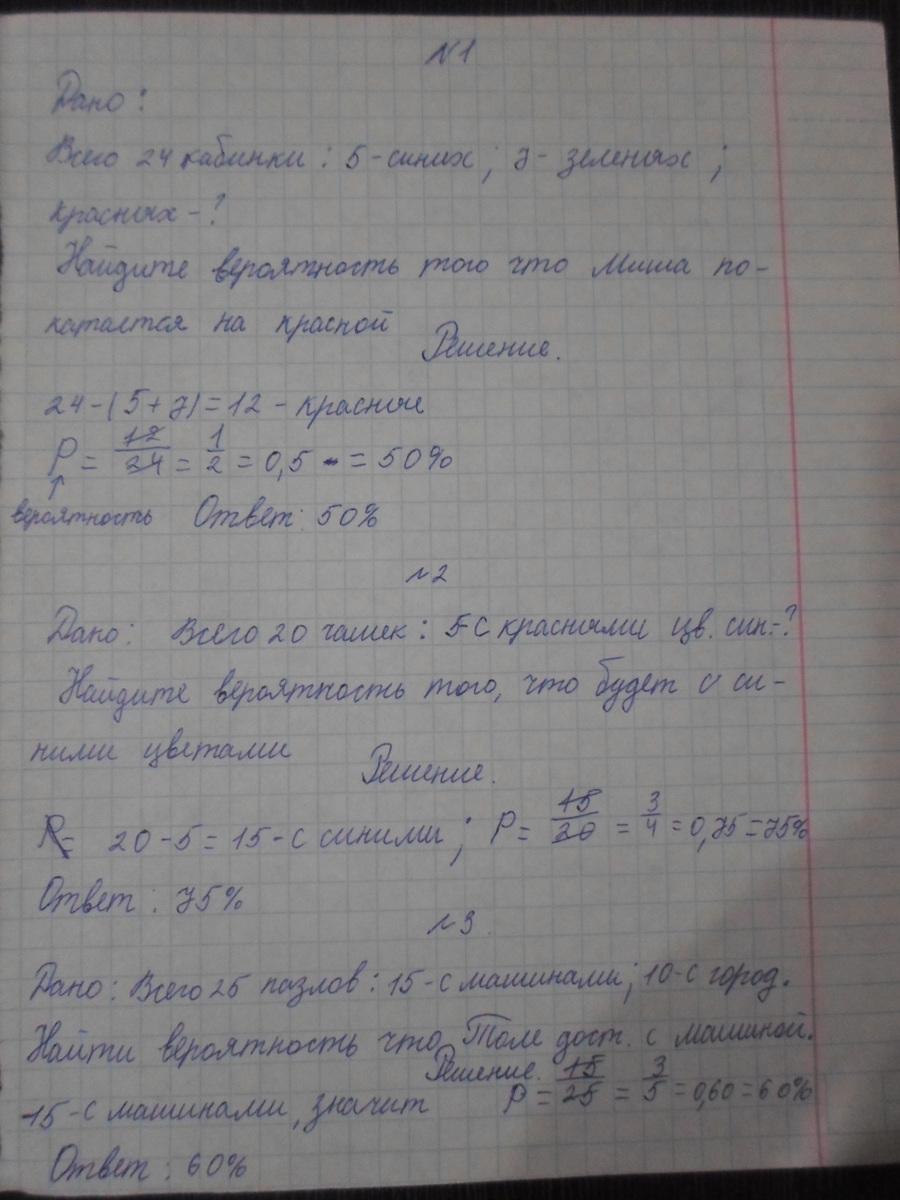 N1
Дано:
Всего 24 кабинки: 5-синих; 7-зеленых;
красных-?
Найдите вероятность того что Миша по-
катается на красной
Решение.
24-(5+7)=12-красные
P = 12/24 = 1/2 = 0,5 = 50%
↑
вероятность Ответ: 50%
N2
Дано: Всего 20 чашек: 5-с красными цв. син.-?
Найдите вероятность того, что будет с си-
ними цветами
Решение.
P= 20-5=15-с синими; P = 15/20 = 3/4 = 0,75 = 75%
Ответ: 75%
N3.
Дано: Всего 25 пазлов: 15-с машинами; 10-с город.
Найти вероятность что Толе дост. с машиной.
Решение.
15-с машинами, значит P = 15/25 = 3/5 = 0,60 = 60%
Ответ: 60%